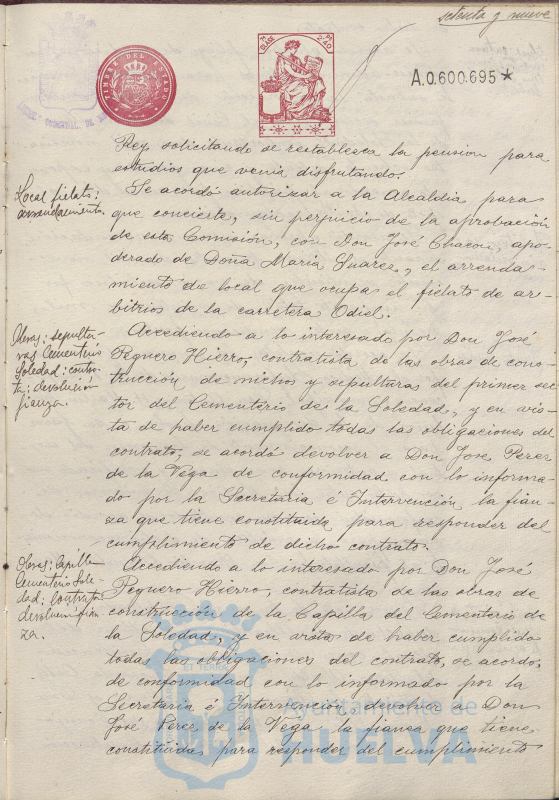 setenta y nueve
TIMBRE DEL ESTADO
CLASE
2'40
A.0.600.695 *
Rey solicitando se restablezca la pension para
estudios que venia disfrutando.
Local fielato:
arrendamiento.
Se acordó autorizar a la Alcaldia para
que concierte, sin perjuicio de la aprobación
de esta Comisión, con Don José Chacon, apo-
derado de Doña Maria Suarez, el arrenda-
miento de local que ocupa el fielato de ar-
bitrios de la carretera Odiel.
Obras: sepultu-
ras Cementerio
Soledad: contra-
ta; devolución
fianza.
Accediendo a lo interesado por Don José
Peguero Hierro, contratista de las obras de cons-
trucción de nichos y sepulturas del primer sec-
tor del Cementerio de la Soledad, y en vis-
ta de haber cumplido todas las obligaciones del
contrato, se acordó devolver a Don José Perez
de la Vega de conformidad con lo informa-
do por la Secretaria é Intervención la fian-
za que tiene constituida para responder del
cumplimiento de dicho contrato.
Obras: Capilla
Cementerio Sole-
dad: contrata
devolucion fian-
za.
Accediendo a lo interesado por Don José
Peguero Hierro, contratista de las obras de
construcción de la Capilla del Cementerio de
la Soledad, y en vista de haber cumplido
todas las obligaciones del contrato, se acordó,
de conformidad con lo informado por la
Secretaria é Intervención, devolver a Don
José Perez de la Vega la fianza que tiene
constituida para responder del cumplimiento
Ayuntamiento de
HUELVA